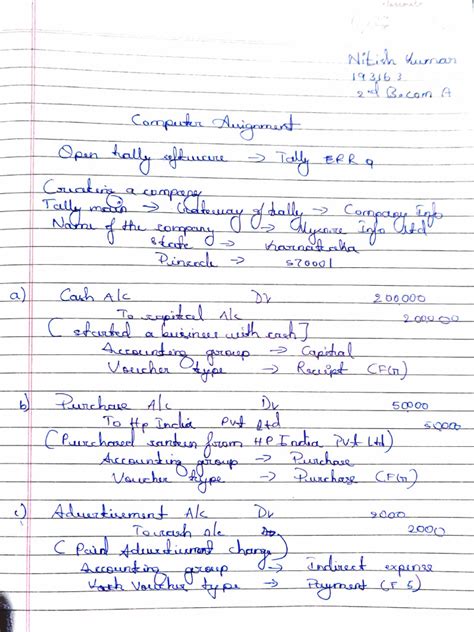 Nitish Kumar
193163
2nd B.com A
Computer Assignment
Open tally software → Tally ERP 9
Creating a company
Tally main → Gateway of tally → Company Info
Name of the company → Info Ltd
State → Karnataka
Pincode → 570001
a) Cash A/c Dr 200000
To capital A/c 200000
( started a business with cash ]
Accounting group → Capital
Voucher type → Receipt (F6)
b) Purchase A/c Dr 50000
To Hp India Pvt Ltd 50000
( Purchased from HP India Pvt Ltd )
Accounting group → Purchase
Voucher type → Purchase
c) Advertisement A/c Dr 2000
To cash A/c 2000
( Paid Advertisment charge )
Accounting group → Indirect expense
Voucher type → Payment (F 5)